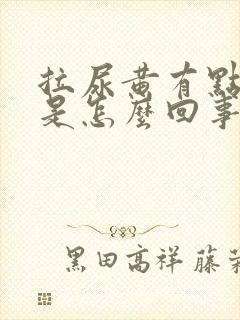 拉尿黄有點
是怎麽回事
黑田高祥 藤